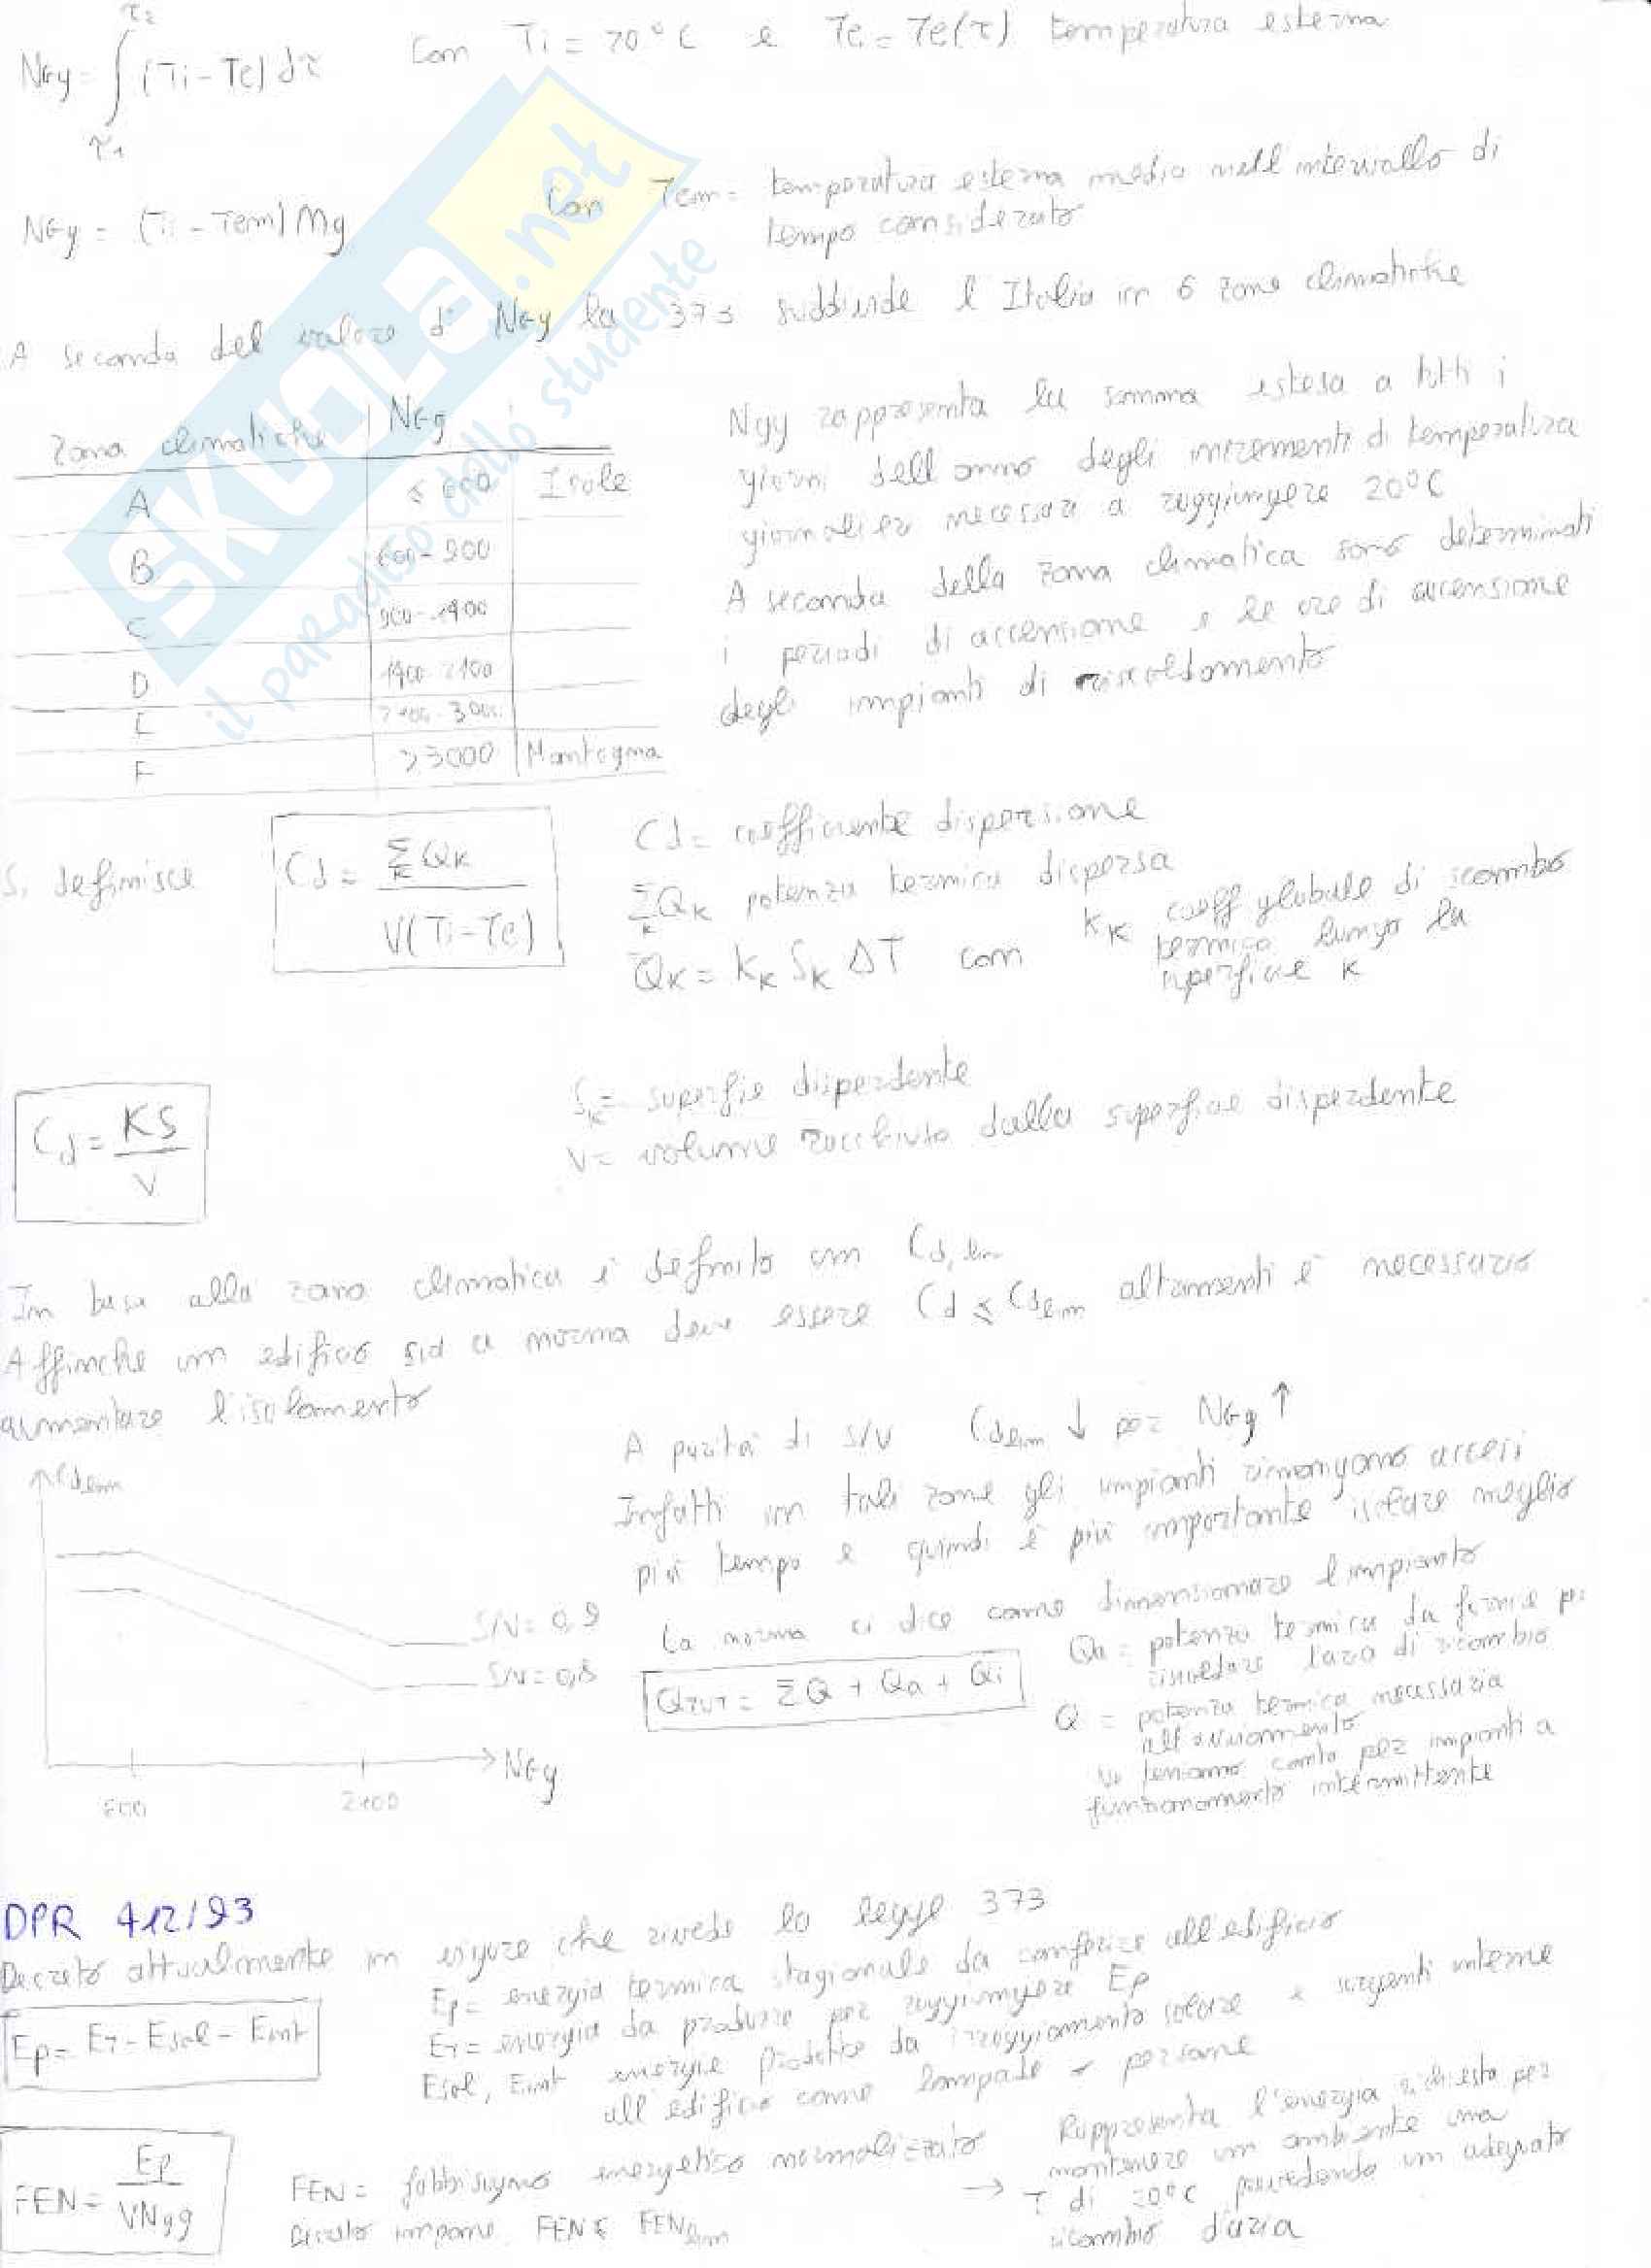 τ2
Ngg = ∫ (Ti - Te) dτ Con Ti = 20°C e Te = Te(τ) temperatura esterna
τ1
Ngg = (Ti - Tem) Mg Con Tem = temperatura esterna media nell intervallo di
tempo considerato
A seconda del valore di Ngg la 373 suddivide l Italia in 6 zone climatiche
Zona climatiche Ngg
A ≤ 600 Isole
B 600 - 900
C 900 - 1400
D 1400 - 2100
E 2100 - 3000
F >3000 Montagna
Ngg rappresenta la somma estesa a tutti i
giorni dell anno degli incrementi di temperatura
giornaliera necessari a raggiungere 20°C
A seconda della zona climatica sono determinati
i periodi di accensione e le ore di accensione
degli impianti di riscaldamento
Si definisce Cd = Σ QK / V(Ti - Te)
K
Cd = coefficiente dispersione
ΣQK potenza termica dispersa
K
QK = KK SK ΔT con KK coeff globale di scambio
termico lungo la
superficie K
Cd = KS / V
SK = superfie disperdente
V = volume racchiuso dalla superficie disperdente
In base alla zona climatica è definito un Cd,lim
Affinche un edificio sia a norma deve essere Cd ≤ Cdlim altrimenti è necessario
aumentare l'isolamento
A parità di S/V Cdlim ↓ per Ngg ↑
Infatti in tali zone gli impianti rimangono accesi
più tempo e quindi è più importante isolare meglio
La norma ci dice come dimensionare l impianto
QTOT = ΣQ + Qa + Qi
Qa = potenza termica da fornire per
riscaldare l'aria di ricambio
Q = potenza termica necessaria
all avviamento
Ne teniamo conto per impianti a
funzionamento intermittente
Cdlim
S/V = 0,9
S/V = 0,8
Ngg
600 2100
DPR 412/93
Decreto attualmente in vigore che rivede la legge 373
Ep = ET - Esol - Eint
Ep = energia termica stagionale da conferire all'edificio
ET = energia da produrre per raggiungere Ep
Esol, Eint energie prodotte da irraggiamento solare e sorgenti interne
all edificio come lampade e persone
FEN = Ep / VNgg
FEN = fabbisogno energetico normalizzato
Decreto impone FEN ≤ FENlim
→ Rappresenta l'energia richiesta per
mantenere un ambiente una
T di 20°C prevedendo un adeguato
ricambio d'aria
SKUOLA.net
il paradiso dello studente